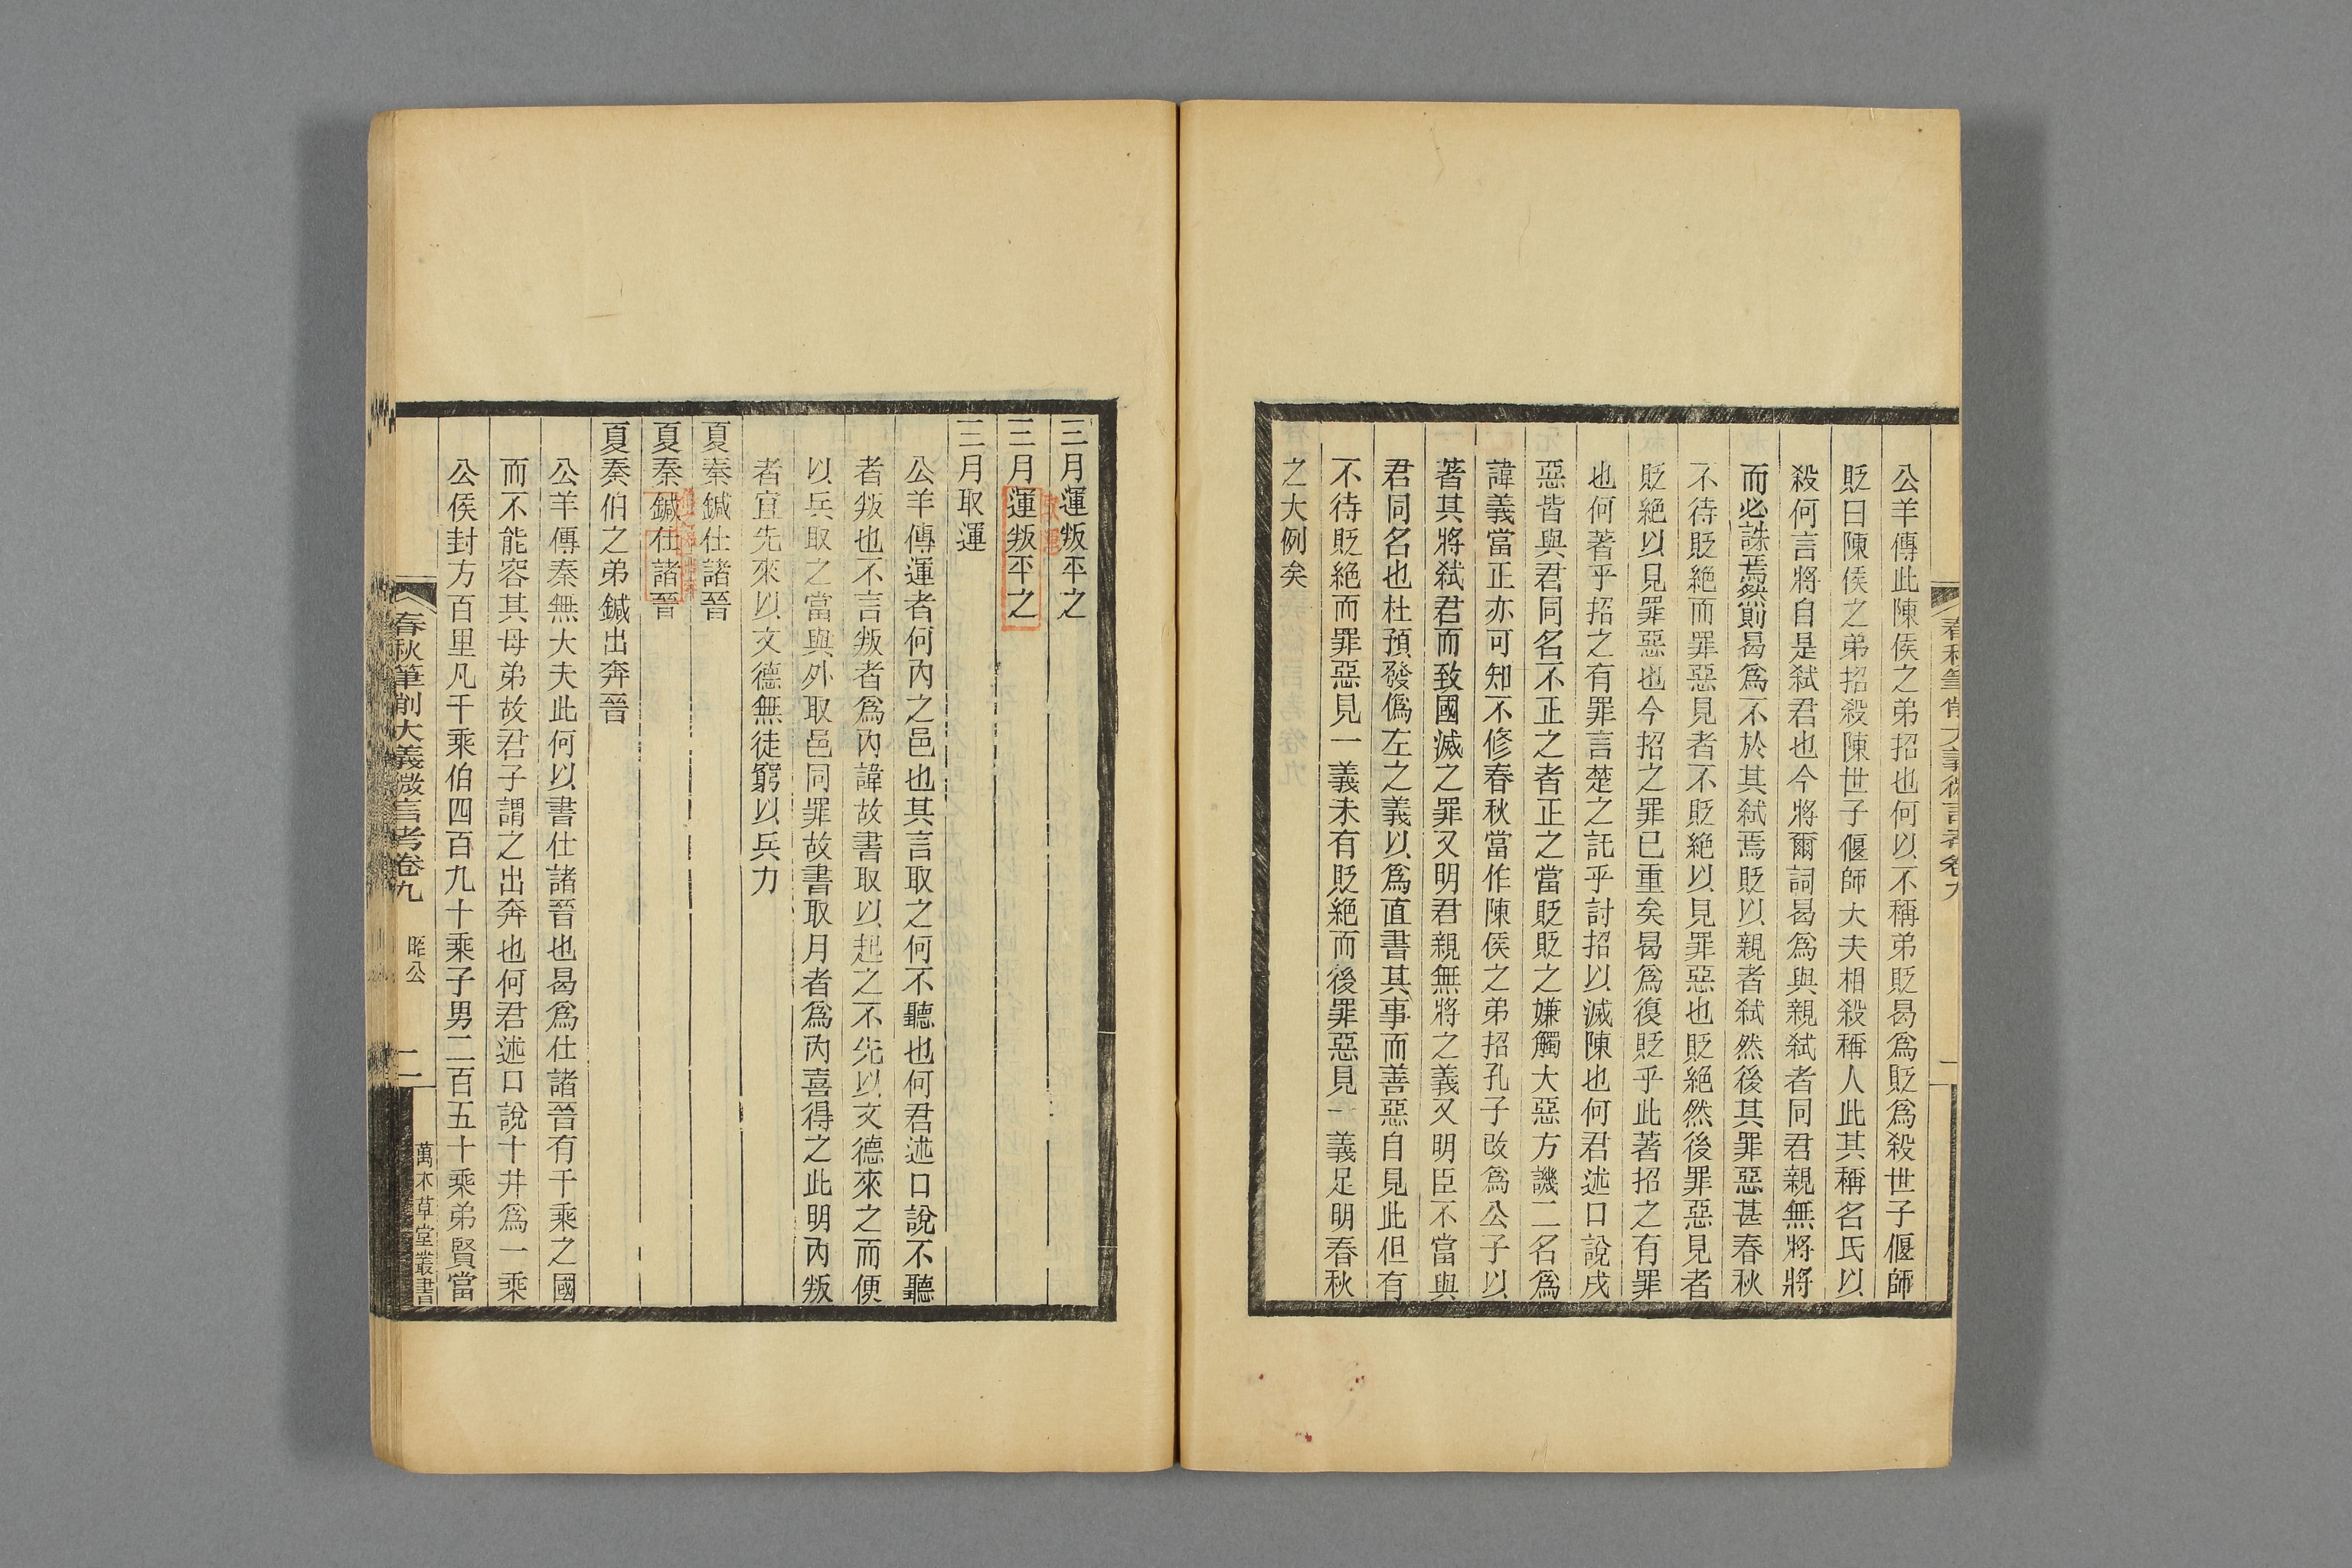 公羊傳此陳侯之弟招也何以不稱弟貶曷爲貶爲殺世子偃師
貶曰陳侯之弟招殺陳世子偃師大夫相殺稱人此其稱名氏以
殺何言將自是弑君也今將爾詞曷爲與親弑者同君親無將將
而必誅焉然則曷爲不於其弑焉貶以親者弑然後其罪惡甚春秋
不待貶絕而罪惡見者不貶絕以見罪惡也貶絕然後罪惡見者
貶絕以見罪惡也今招之罪已重矣曷爲復貶乎此著招之有罪
也何著乎招之有罪言楚之託乎討招以滅陳也何君述口說戌
惡皆與君同名不正之者正之當貶貶之嫌觸大惡方譏二名爲
諱義當正亦可知不修春秋當作陳侯之弟招孔子改爲公子以
著其將弑君而致國滅之罪又明君親無將之義又明臣不當與
君同名也杜預發僞左之義以爲直書其事而善惡自見此但有
不待貶絕而罪惡見一義未有貶絕而後罪惡見一義足明春秋
之大例矣
三月運叛平之
三月運叛平之
三月取運
公羊傳運者何內之邑也其言取之何不聽也何君述口說不聽
者叛也不言叛者爲內諱故書取以起之不先以文德來之而便
以兵取之當與外取邑同罪故書取月者爲內喜得之此明內叛
者宜先來以文德無徒窮以兵力
夏秦鍼仕諸晉
夏秦鍼仕諸晉
夏秦伯之弟鍼出奔晉
公羊傳秦無大夫此何以書仕諸晉也曷爲仕諸晉有千乘之國
而不能容其母弟故君子謂之出奔也何君述口說十井爲一乘
公侯封方百里凡千乘伯四百九十乘子男二百五十乘弟賢當
春秋筆削大義微言考卷九 昭公 二 萬木草堂叢書